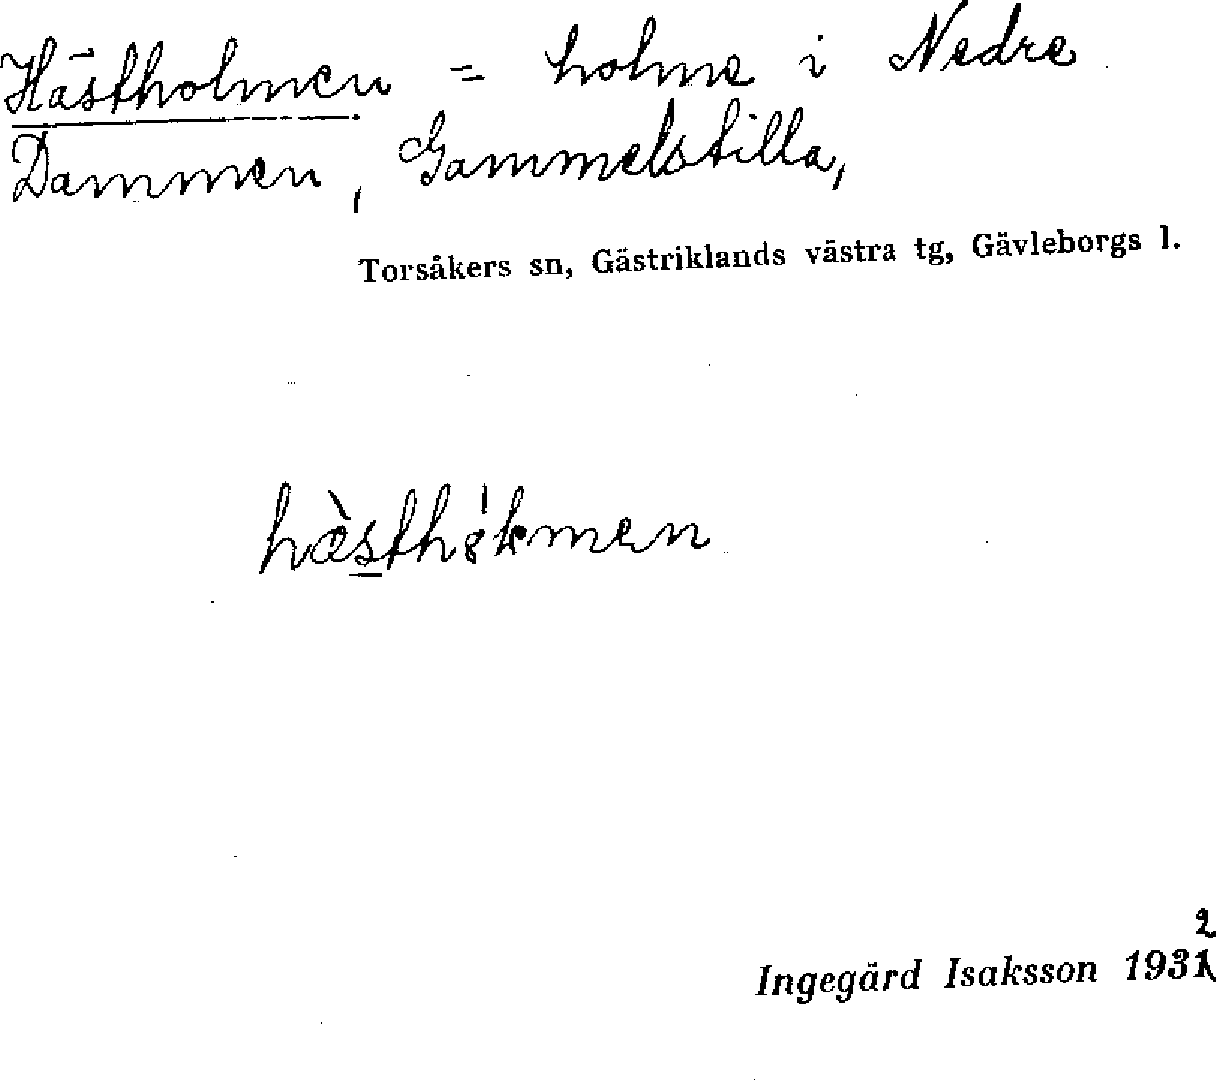 Hästholmen = holme i Nedre
Dammen, Gammelstilla,
Torsåkers sn, Gästriklands västra tg, Gävleborgs l.
2
Ingegärd Isaksson 1931